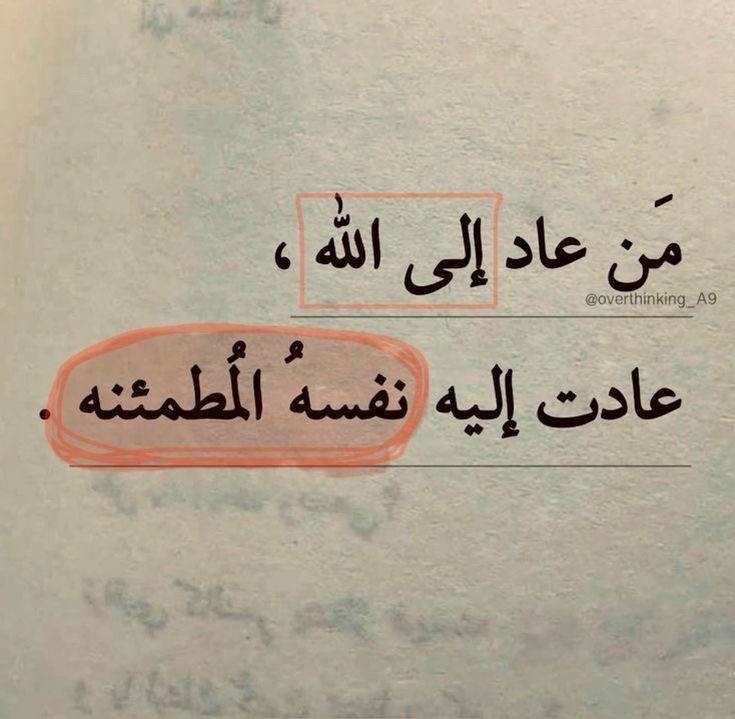 مَن عاد إلى الله ،
@overthinking_A9
عادت إليه نفسهُ المُطمئنه .